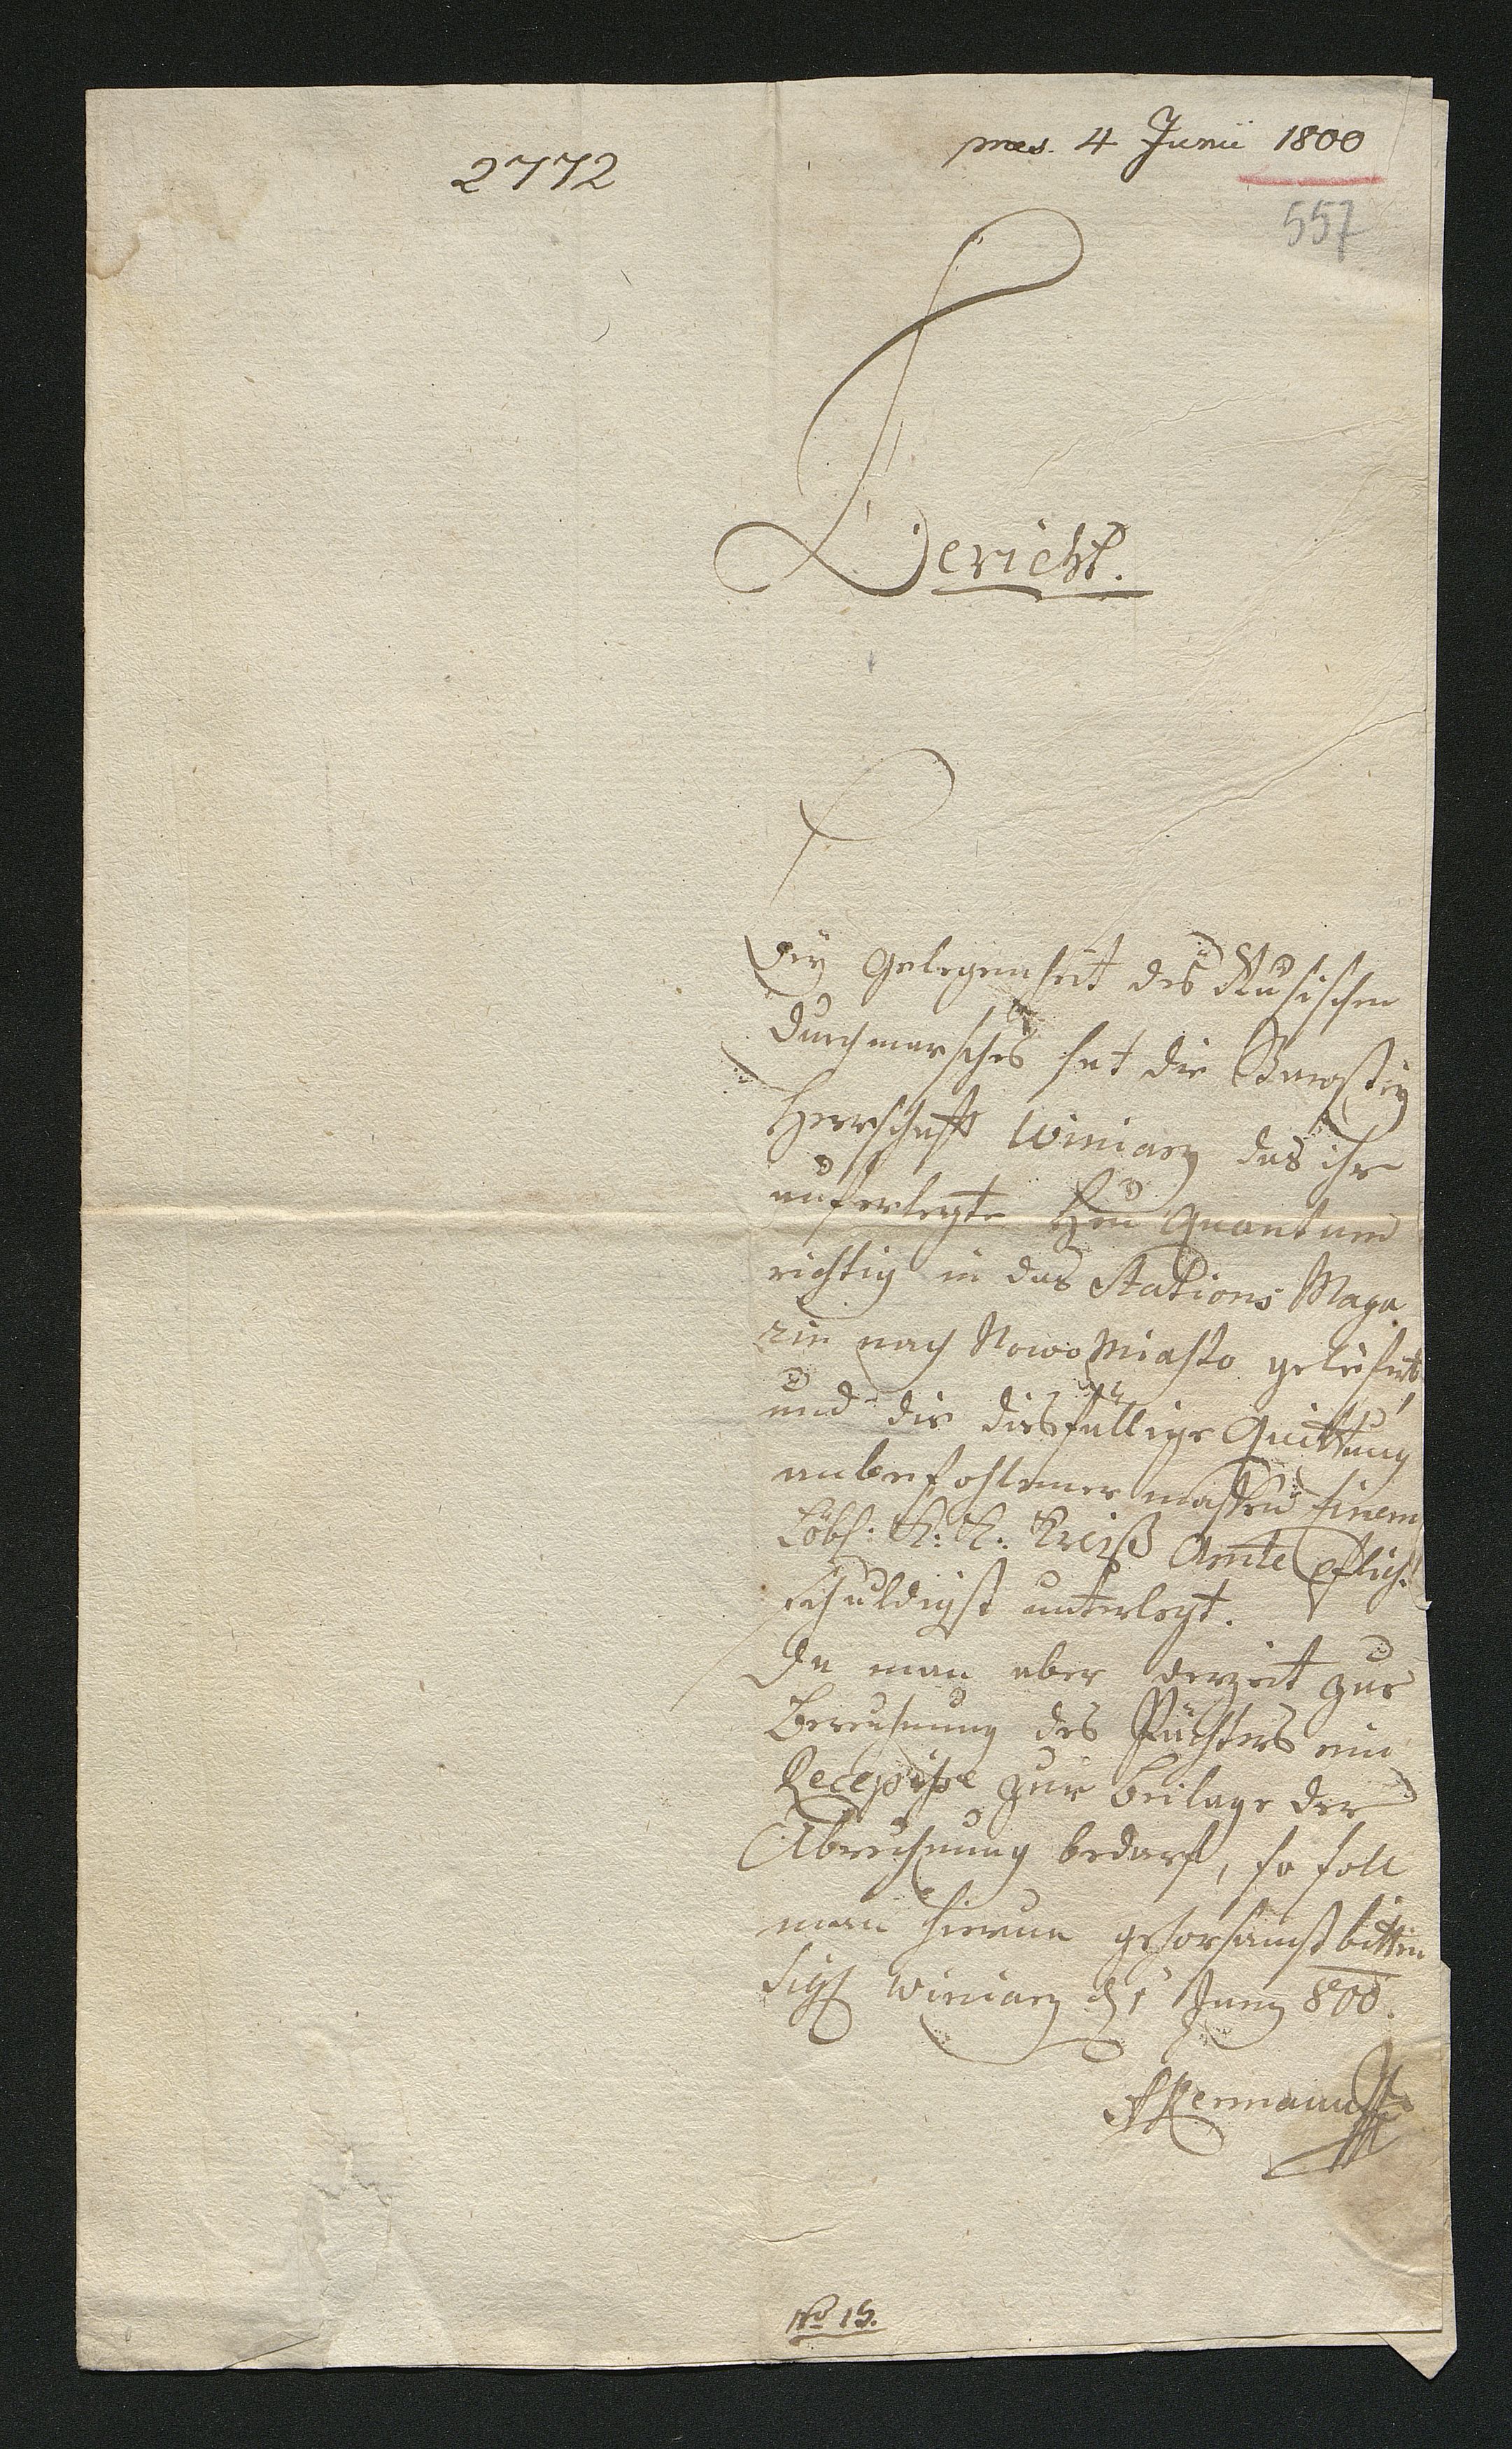 2772
pres. 4 Junii 1800
557
Bericht.
Bey Gelegenheit des Rusischen
Durchmarsches hat die
Herrschaft Winiary das ihr
auferlegte Heu Quantum
richtig in das Stations Maga
zin nach Nowo Miasto geliefert,
und die diesfällige Quittung
anbefohlener massen Einem
Löbl: K: K: Kreiß Amte pflicht
schuldigst unterlegt.
Da man aber derzeit zur
Berechnung des Pächters ein
Recepisse zur Beilage der
Abrechnung bedarf, so soll
man hierum gehorsamst bitten
Sigl Winiary d 1 Juny 800.
Akermann
No 15.